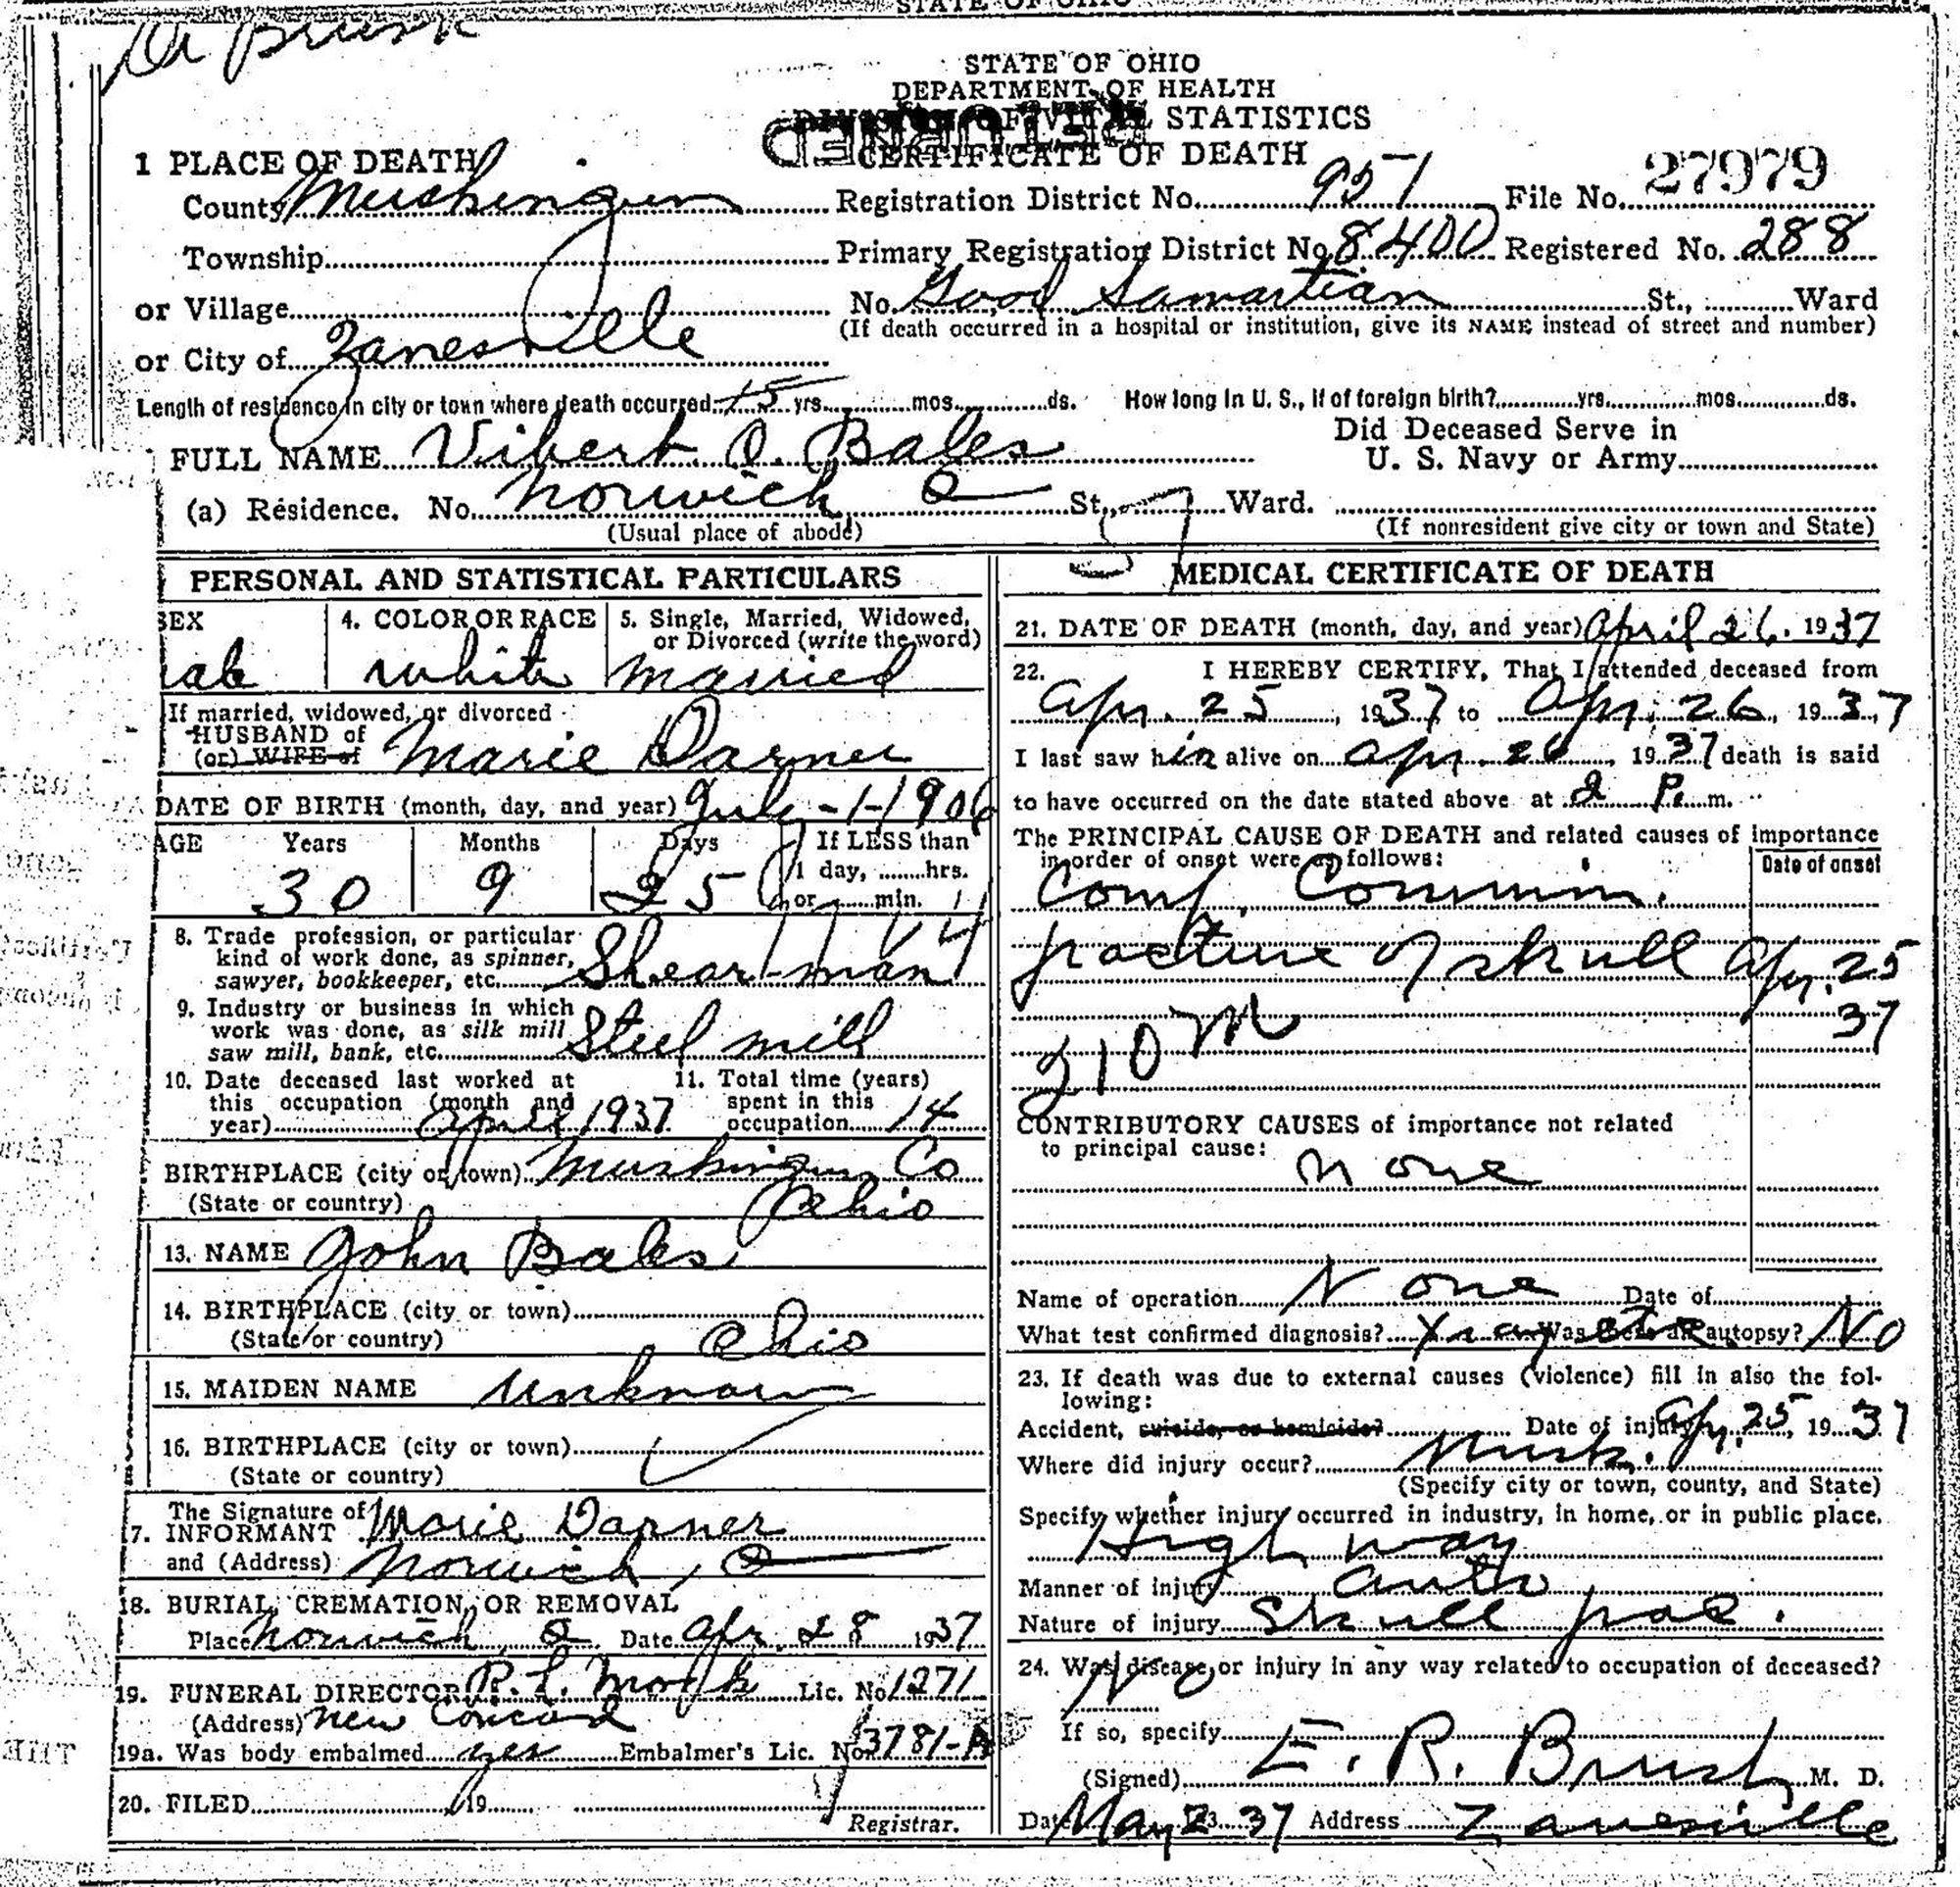 STATE OF OHIO
Dr Brush
STATE OF OHIO
DEPARTMENT OF HEALTH
DIVISION OF VITAL STATISTICS
RETURNED
CERTIFICATE OF DEATH
1 PLACE OF DEATH
County Muskingum Registration District No. 957 File No. 27979
Township Primary Registration District No. 8400 Registered No. 288
or Village No. Good Samartian St., Ward
(If death occurred in a hospital or institution, give its NAME instead of street and number)
or City of Zanesville
Length of residence in city or town where death occurred yrs. mos. ds. How long in U. S., if of foreign birth? yrs. mos. ds.
Did Deceased Serve in
U. S. Navy or Army
FULL NAME Vibert O. Bales
(a) Residence. No. Norwich O St., Ward.
(Usual place of abode) (If nonresident give city or town and State)
PERSONAL AND STATISTICAL PARTICULARS
SEX 4. COLOR OR RACE 5. Single, Married, Widowed, or Divorced (write the word)
ale white married
If married, widowed, or divorced
HUSBAND of
(or) WIFE of Marie Darner
DATE OF BIRTH (month, day, and year) July -1-1906
AGE Years Months Days If LESS than
1 day, hrs.
or min.
30 9 25
8. Trade profession, or particular
kind of work done, as spinner,
sawyer, bookkeeper, etc. Shear-man
9. Industry or business in which
work was done, as silk mill
saw mill, bank, etc. Steel mill
10. Date deceased last worked at
this occupation (month and
year) April 1937
11. Total time (years)
spent in this
occupation 14
BIRTHPLACE (city or town) Muskingum Co
(State or country) Ohio
13. NAME John Bales
14. BIRTHPLACE (city or town)
(State or country) Ohio
15. MAIDEN NAME Unknown
16. BIRTHPLACE (city or town)
(State or country)
The Signature of
17. INFORMANT Marie Darner
and (Address) Norwich, O
18. BURIAL, CREMATION, OR REMOVAL
Place Norwich, O. Date Apr. 28 1937
19. FUNERAL DIRECTOR R. L. Lic. No. 1271
(Address) New Concord
19a. Was body embalmed yes Embalmer's Lic. No. 3781-A
20. FILED 19
Registrar.
MEDICAL CERTIFICATE OF DEATH
21. DATE OF DEATH (month, day, and year) April 26. 1937
22. I HEREBY CERTIFY, That I attended deceased from
Apr. 25, 1937 to Apr. 26, 1937
I last saw him alive on Apr. 26, 1937 death is said
to have occurred on the date stated above at 2 P. m.
The PRINCIPAL CAUSE OF DEATH and related causes of importance
in order of onset were as follows: Date of onset
Comp. Commin.
fracture of skull Apr. 25
37
210 M
CONTRIBUTORY CAUSES of importance not related
to principal cause:
None
Name of operation None Date of
What test confirmed diagnosis? Xray etc. Was there an autopsy? No
23. If death was due to external causes (violence) fill in also the fol-
lowing:
Accident, suicide, or homicide? Date of injury Apr. 25, 1937
Where did injury occur? Musk.
(Specify city or town, county, and State)
Specify whether injury occurred in industry, in home, or in public place.
Highway
Manner of injury auto
Nature of injury Skull frac.
24. Was disease or injury in any way related to occupation of deceased?
No
If so, specify
(Signed) E. R. Brush M. D.
Date May 37 Address Zanesville